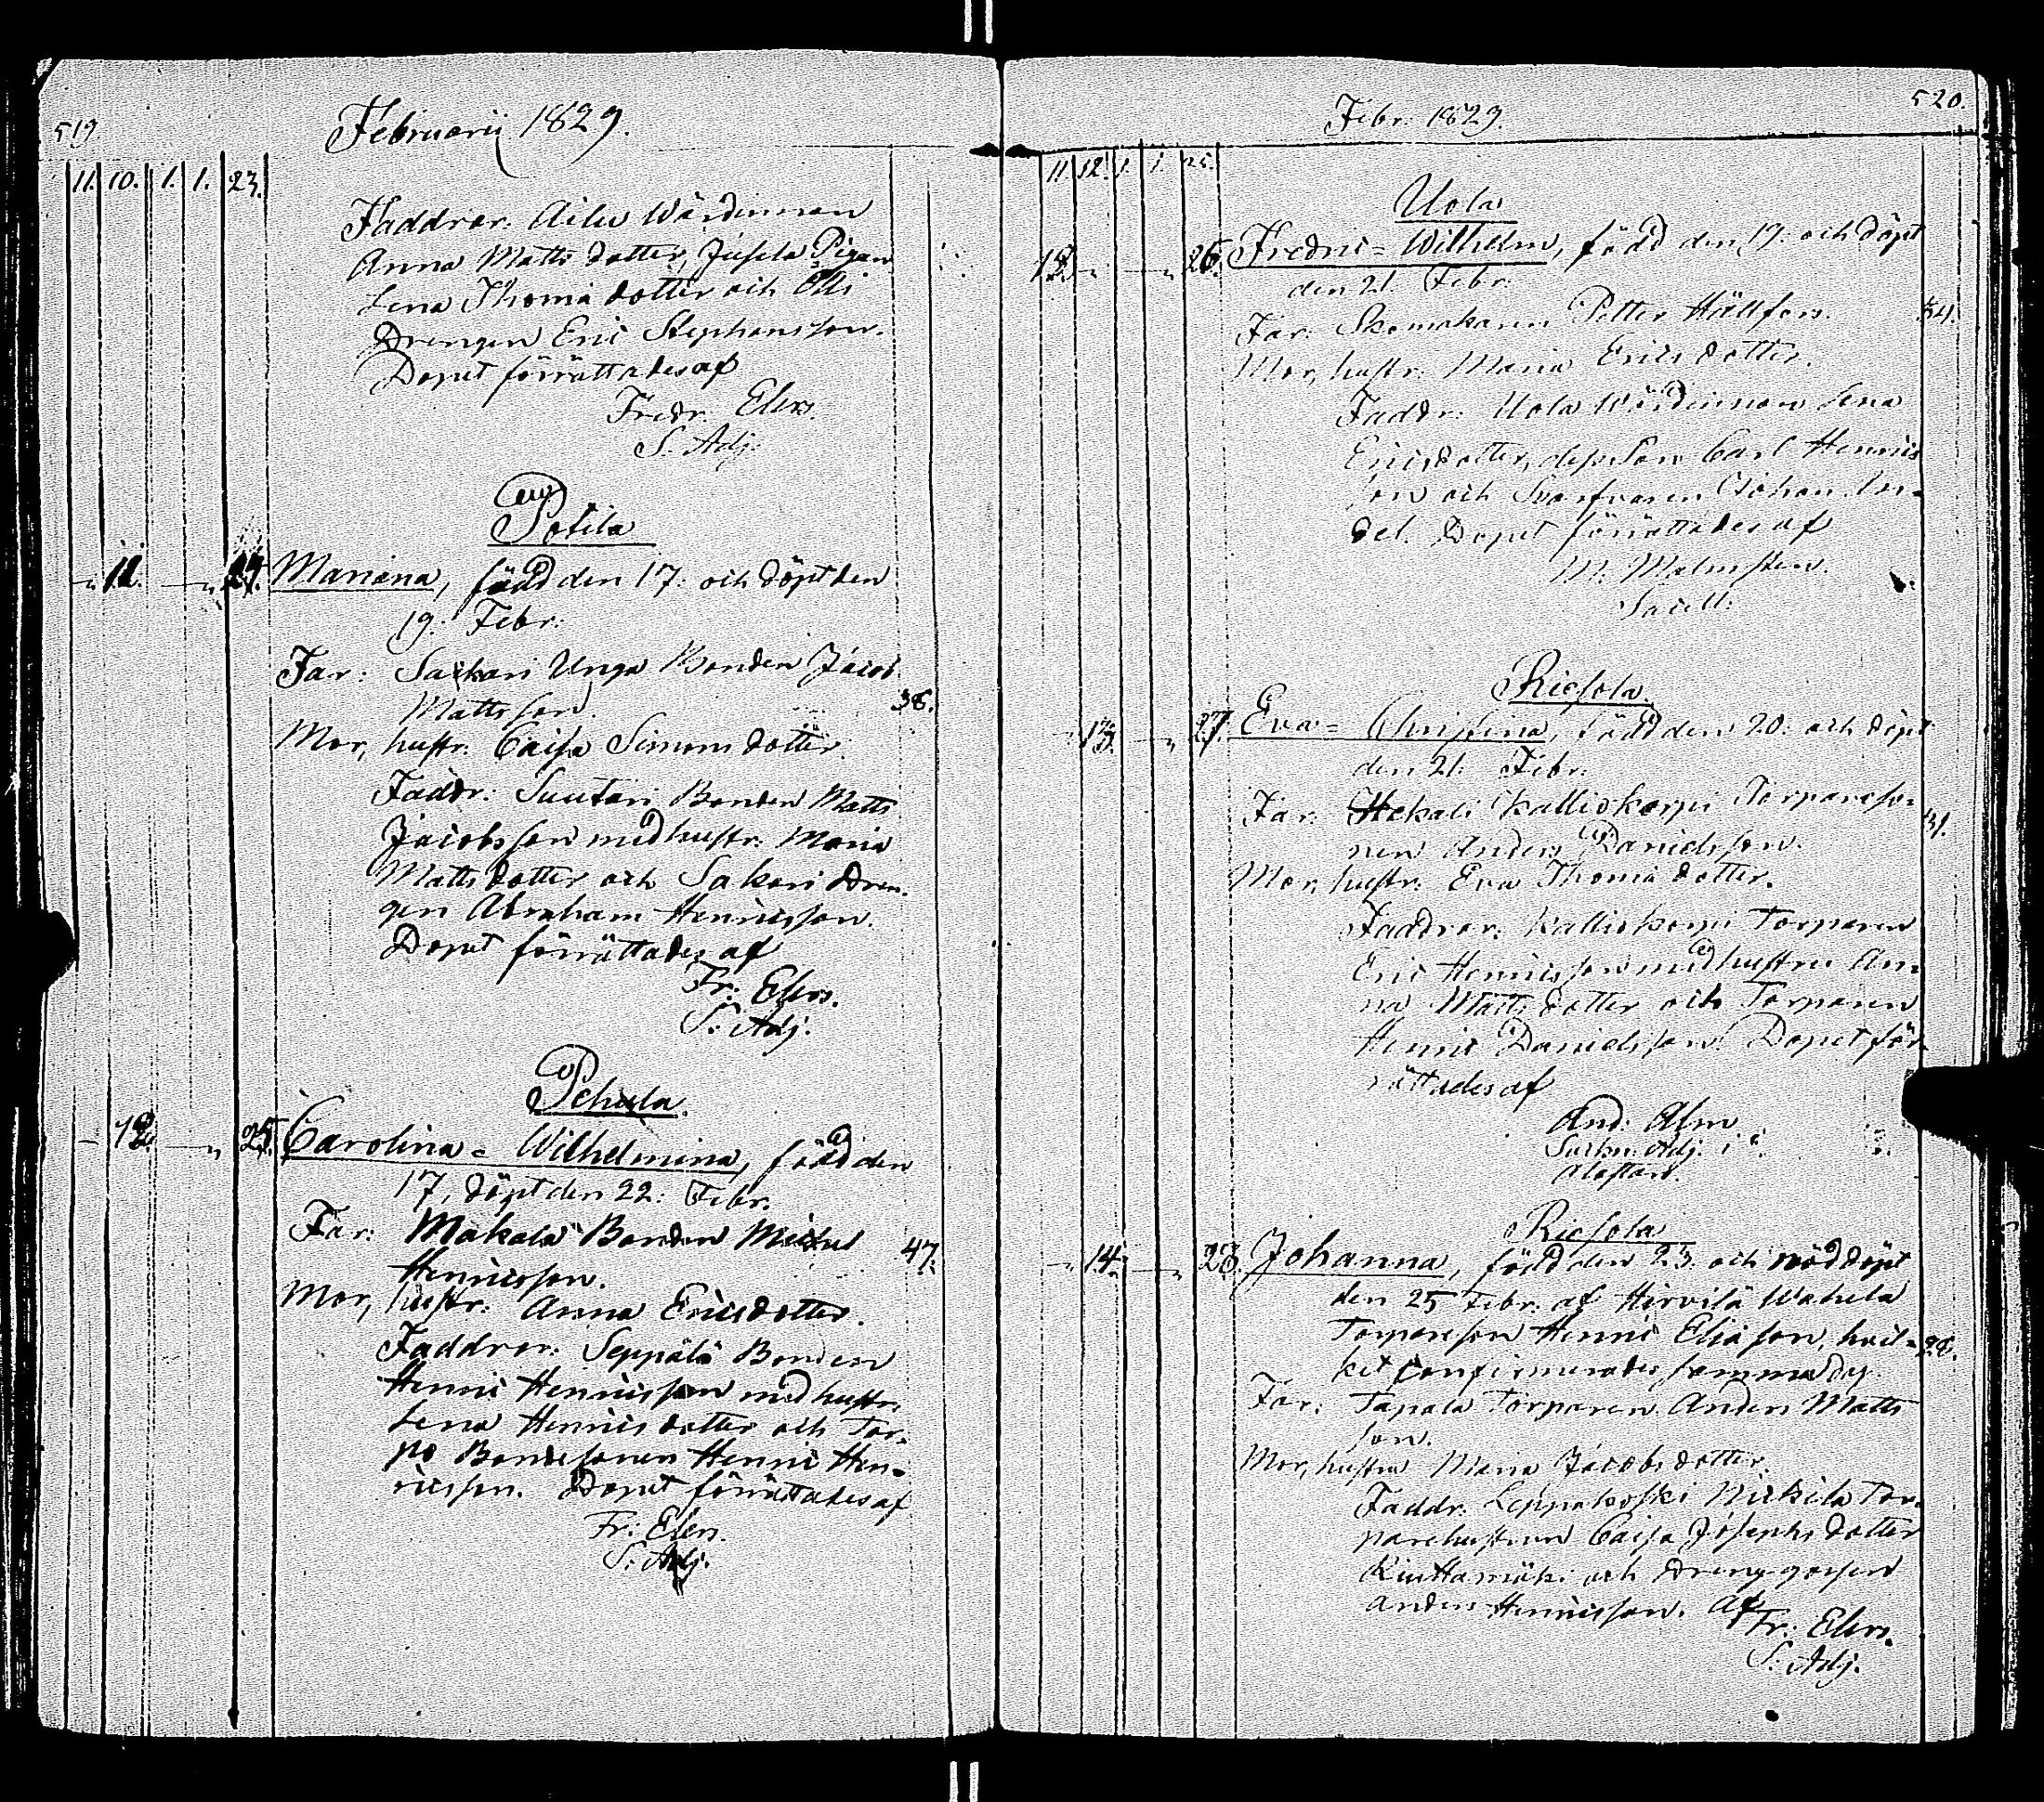 519.
Februarii 1829.
11. 10. 1. 1. 23.
Faddrar: Aila Wärdinnan
Anna Matts dotter, Jusela Pigan
Lena Thomæ dotter och Olli
Drengen Eric Stephansson.
Dopet förrättades af
Fredr. Elers.
S. Adj.
Potila
" 11. — " 24. Mariana, född den 17: och döpt den
19: Febr:
Far: Sakari Unga Bonden Jacob
Mattsson. 38.
Mor, hustr: Caisa Simons dotter
Faddr: Suutari Bonden Matts
Jacobsson med hustr: Maria
Matts dotter och Sakari dren-
gen Abraham Henricsson.
Dopet förrättades af
Fr: Elers.
S: Adj.
Pehula
12. — " 25. Carolina = Wilhelmina, född den
17, döpt den 22: Febr.
Far: Makala Bonden Michel 47.
Henricsson.
Mor, hustr: Anna Ericsdotter.
Faddrar: Seppälä Bonden
Henric Henricsson med hustr:
Lena Henrics dotter och Tor-
po Bondesonen Henric Hen-
ricsson. Dopet förrättades af
Fr: Elers.
S: Adj.
520.
Febr: 1829.
11 12. 1. 1. 25.
Uola
12. " — " 26. Fredric = Wilhelm, född den 19: och döpt
den 21. Febr:
Far: Skomakaren Petter Hällfors. 34.
Mor, hustr: Maria Erics dotter.
Faddr: Uola Wärdinnan Lena
Ericsdotter, dess Son Carl Henrics
son och Svarfvaren Johan
del. Dopet förrättades af
M. Malmsten.
Sacell:
Ricsola
" 13. — " 27. Eva = Christina, född den 20: och döpt
den 21: Febr:
Far: Hekali Kalliokorpi Torpareso- 31.
nen Anders Danielsson.
Mor, hustr: Eva Thomæ dotter.
Faddrar: Kalliokorpi Torparen
Eric Henricsson med hustru An-
na Matts dotter och Torparen
Henric Danielsson. Dopet för-
rättades af
And: Alm
Sockn: Adj: i
Alastaro.
Ricsola
" 14. — " 28. Johanna, född den 23. och nöddöpt
den 25 Febr: af Hirvilä Wahela
Torparson Henric Eliasson, hvil- 28.
ket confirmerades samma dag.
Far: Tapala Torparen Anders Matts
son.
Mor, hustru Maria Jacobs dotter.
Faddr: Leppäkoski Nikkila Tor-
parehustrun Caisa Josephs dotter
Kiuttamäki och drenggossen
Anders Henricsson. Af
Fr: Elers.
S: Adj.